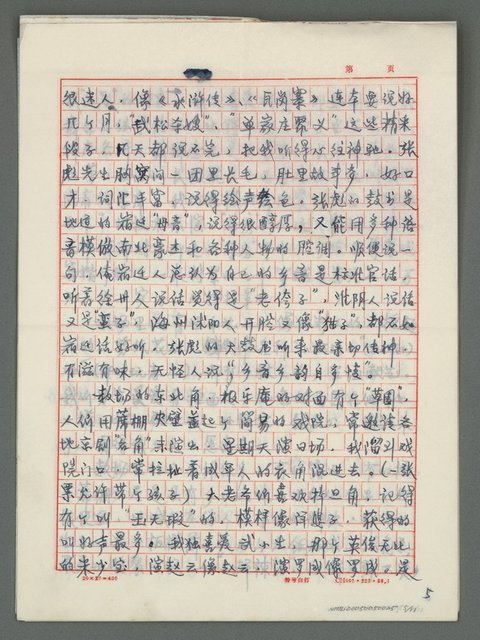 第 页
很迷人，像《水浒传》、《瓦岗寨》连本要说好
几个月，"武松杀嫂"、"单家庄聚义"这些精采
段子，几天都说不完，把我听得心往神驰。张
彪先生胸窝间一团黑长毛，肚里故事多，好口
才，词汇丰富，说得绘声绘色，张彪的鼓书是
地道的宿迁"母音"，说得很醇厚，又能用多种语
音模倣南北豪杰和各种人物的腔调。顺便说一
句，传宿迁人总认为自己的乡音是标准官话，
听着徐州人说话觉得是"老侉子"，淮阴人说话
又是"蛮子"，海州沭阳人开腔又像"", 都不如
宿迁话好听，张彪的大鼓书听来最亲切传神，
有滋有味，无怪人说"乡音乡韵自多情"。
教场的东北角，极乐庵的对面有个"草园"，
人们用蓆棚夹壁盖起个简易的戏院，常邀请各
地京剧"名角"来演出，星期天演日场，我溜到戏
院门口，常拉扯着成年人的衣角混进去。(一张
票允许带个孩子) 大老爷们喜欢捧旦角，记得
有个叫"王无瑕"的，模样像阎婆子，获得的
叫好声最多。我独喜爱武小生，那个英俊无比
的朱少宗，演赵云像赵云，演罗成像罗成，是
20×20=400
5